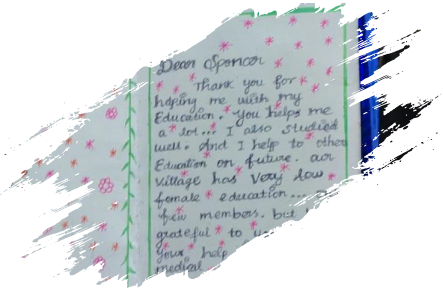 Dear Sponcer
Thank you for
helping me with my
Education. You helps me
a lot... I also studied
well. And I help to other
Education on future. our
village has very low
female education...
few members. but
grateful to
your help
medical